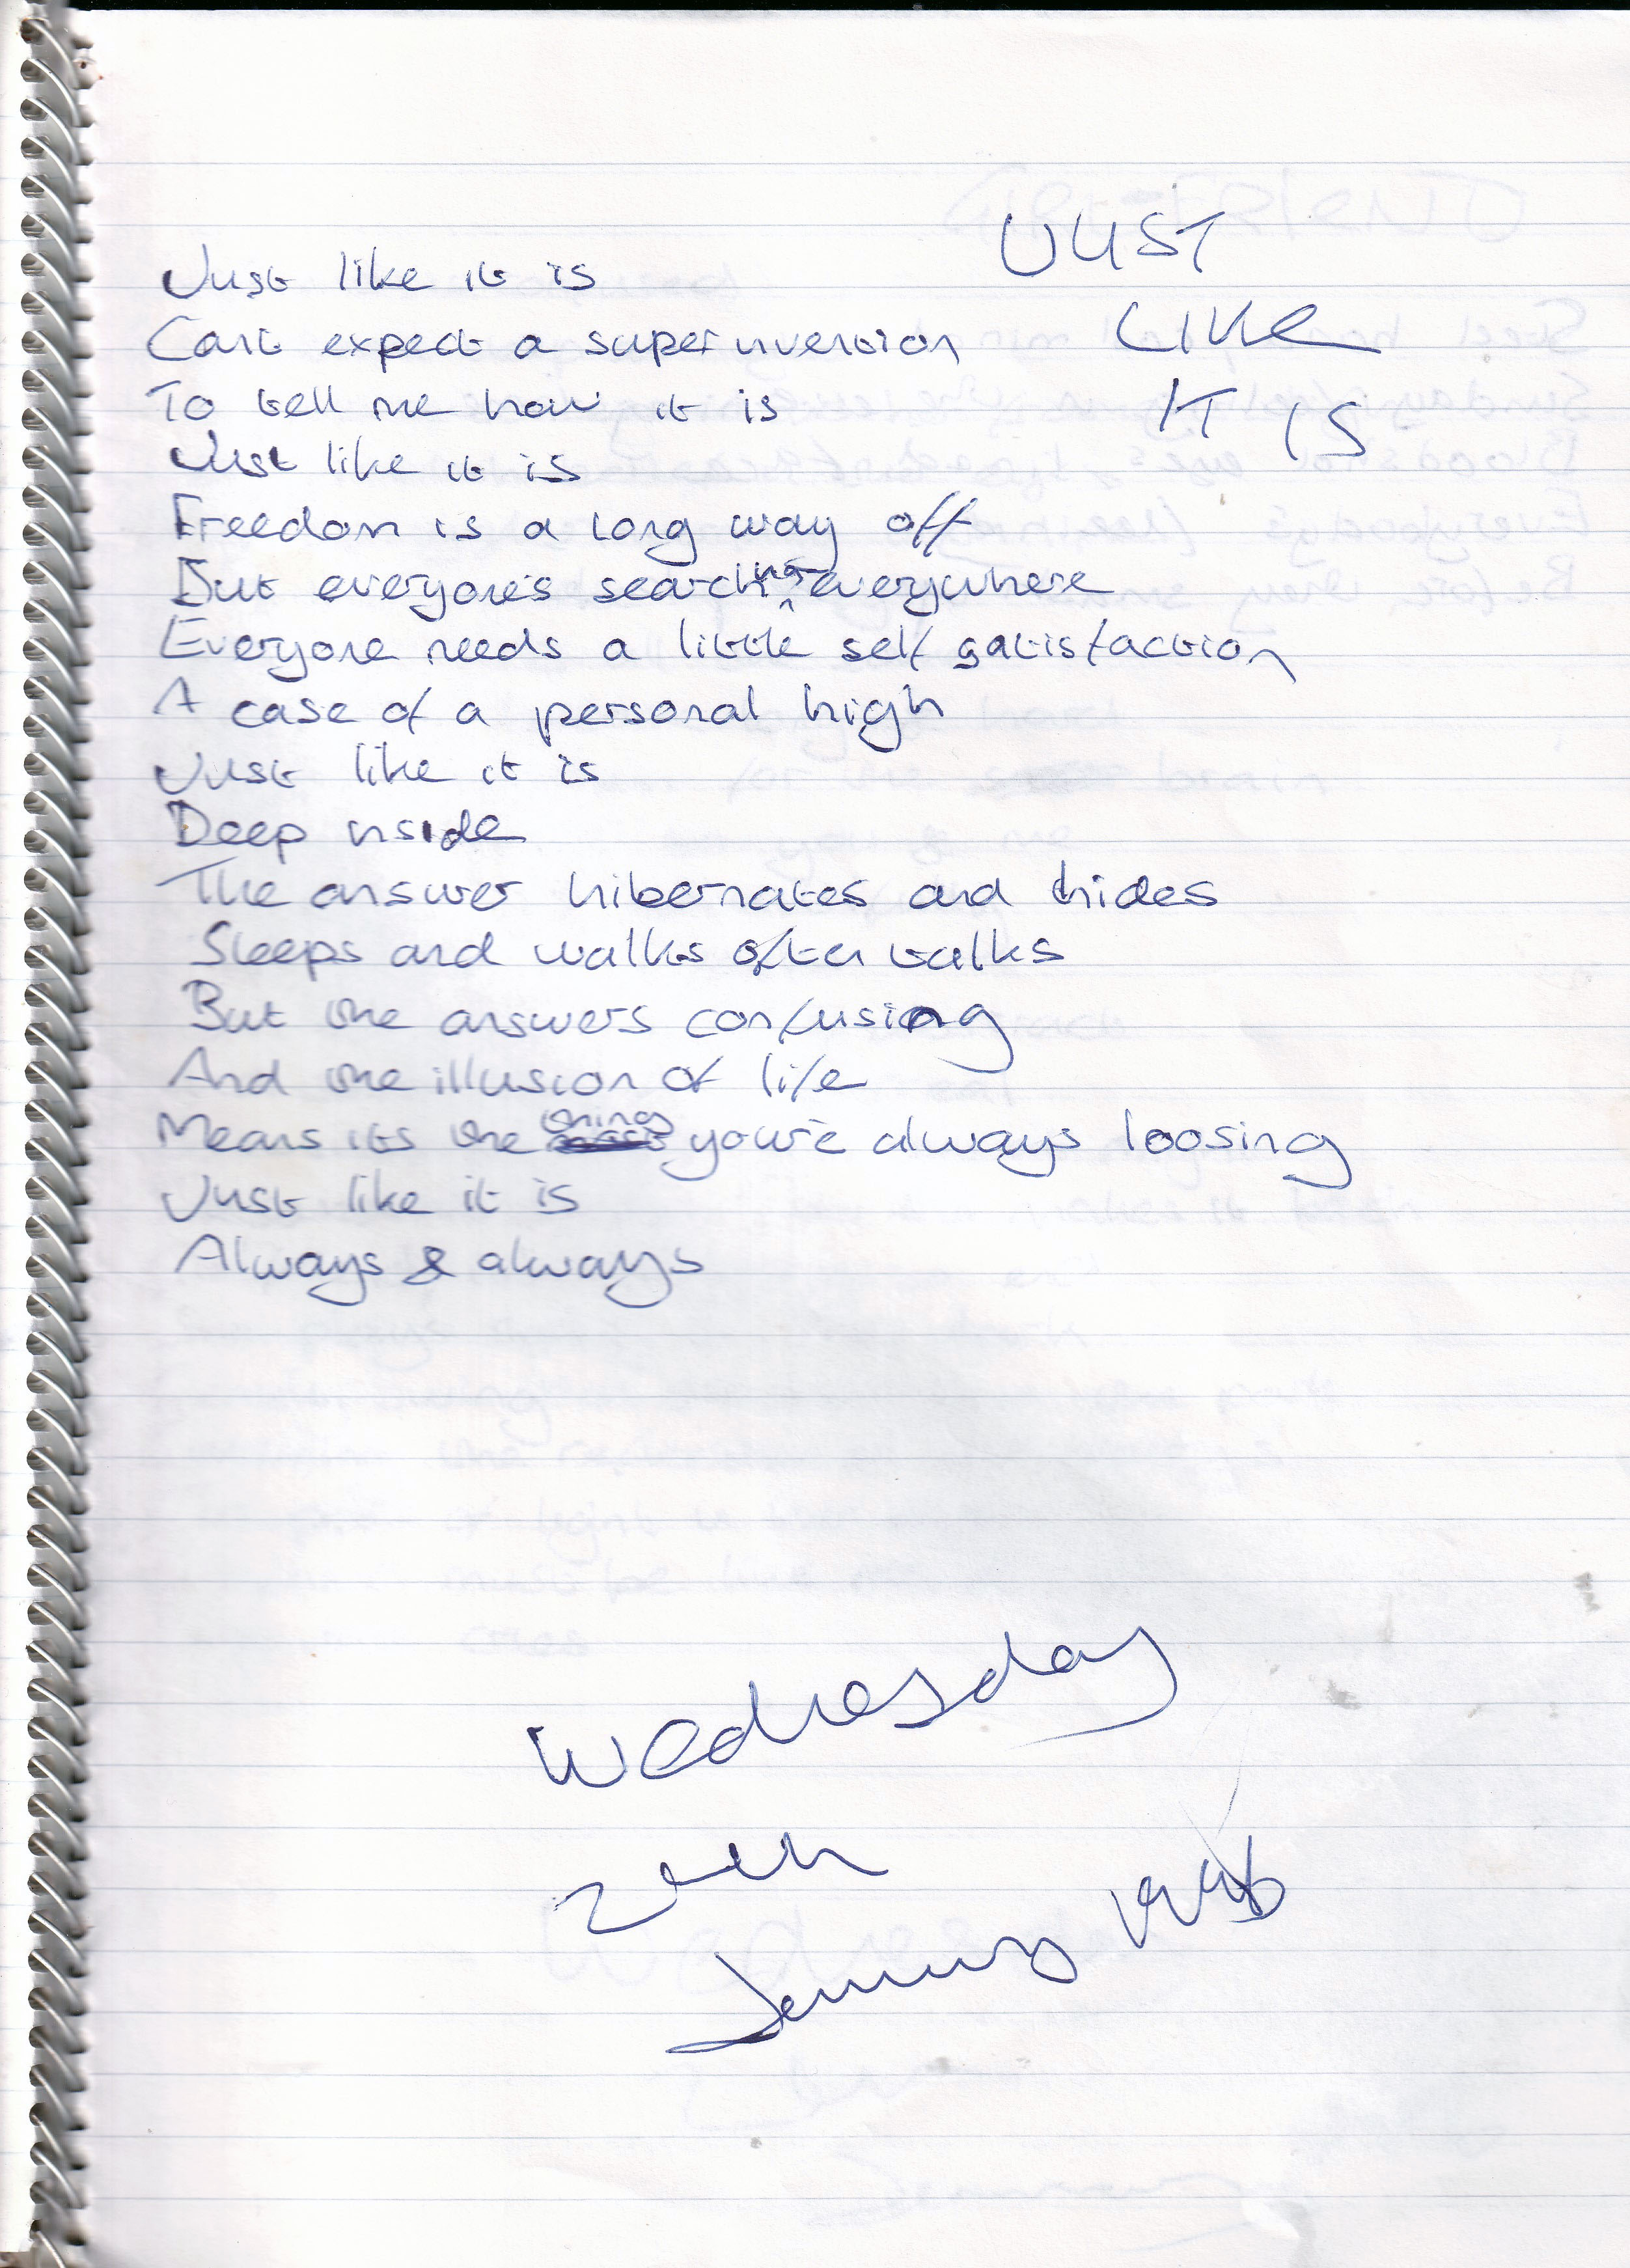 JUST
LIKE
IT IS
Just like it is
Cant expect a super invention
To tell me how it is
Just like it is
Freedom is a long way off
But everyone's searching everywhere
Everyone needs a little self satisfaction
A case of a personal high
Just like it is
Deep inside
The answer hibernates and hides
Sleeps and walks often talks
But the answers confusing
And the illusion of life
Means its the things you're always loosing
Just like it is
Always & always
Wednesday
January